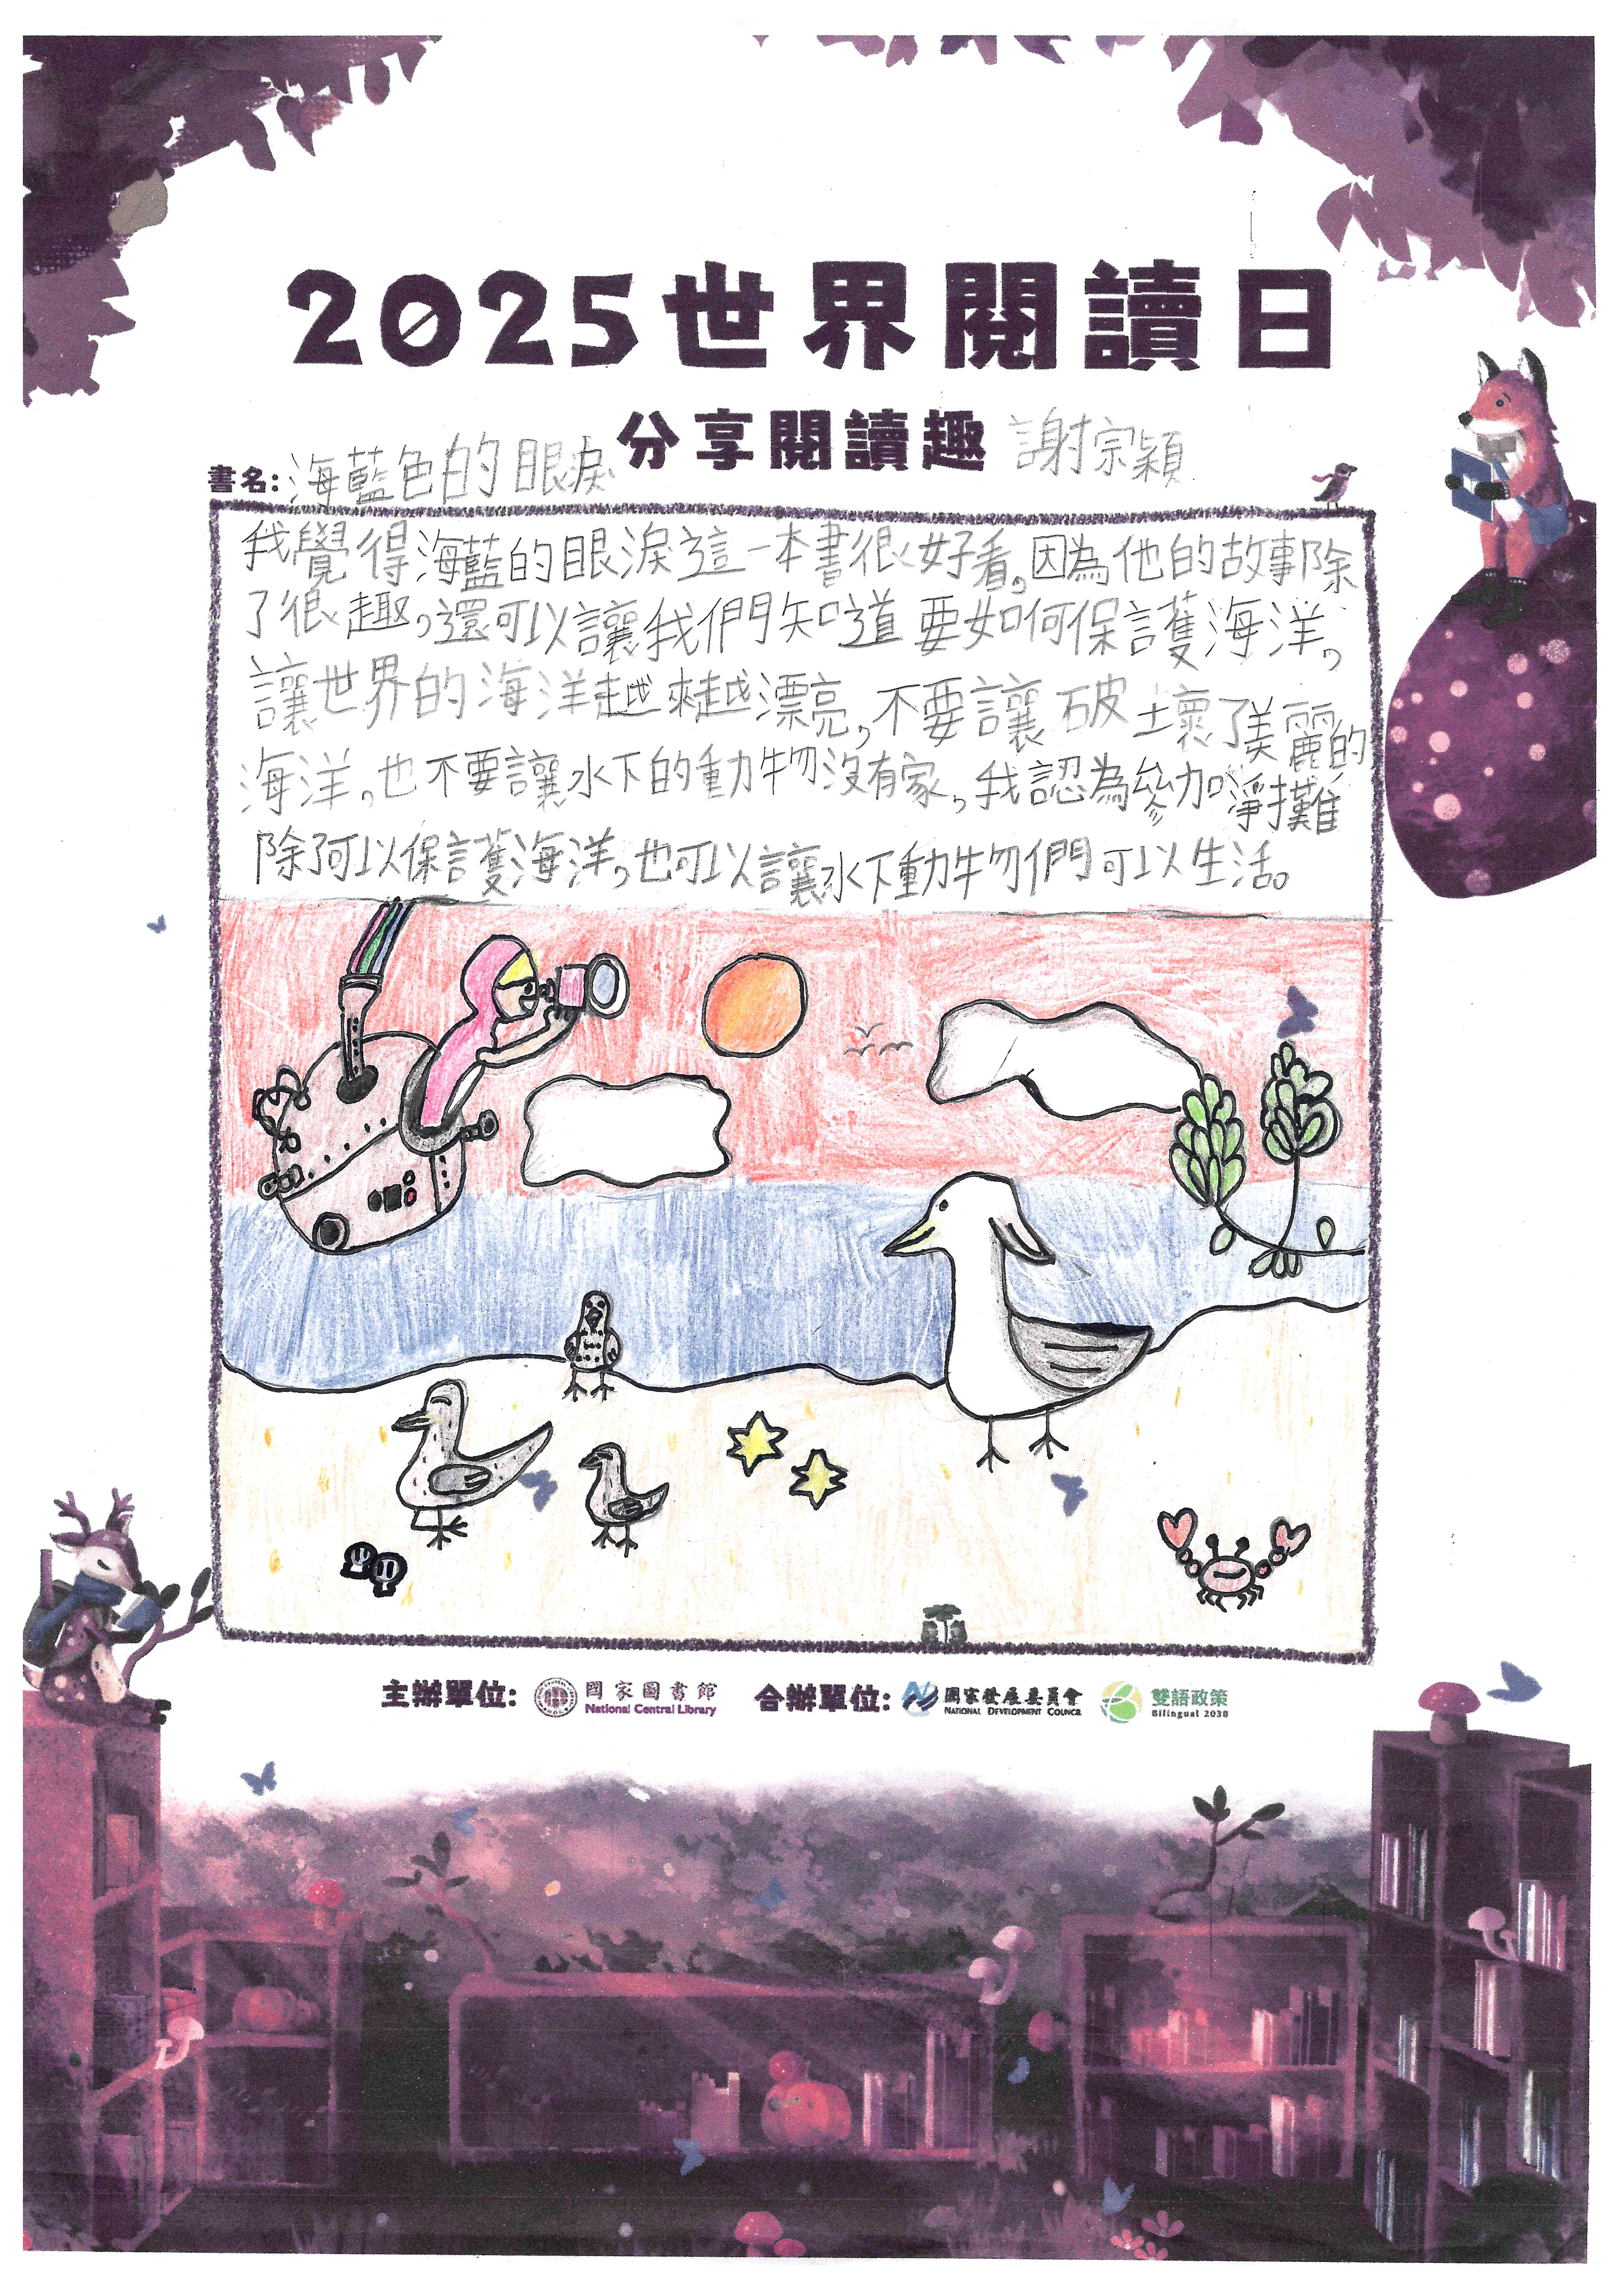 2025世界閱讀日
分享閱讀趣 謝宗穎
書名:海藍色的眼淚
我覺得海藍的眼淚這一本書很好看,因為他的故事除
了很趣,還可以讓我們知道要如何保護海洋,
讓世界的海洋越來越漂亮,不要讓破壞了美麗的
海洋,也不要讓水下的動物沒有家,我認為參加淨攤
除了可以保護海洋,也可以讓水下動物們可以生活。
主辦單位: 國家圖書館 National Central Library 合辦單位: 國家發展委員會 NATIONAL DEVELOPMENT COUNCIL 雙語政策 Bilingual 2030